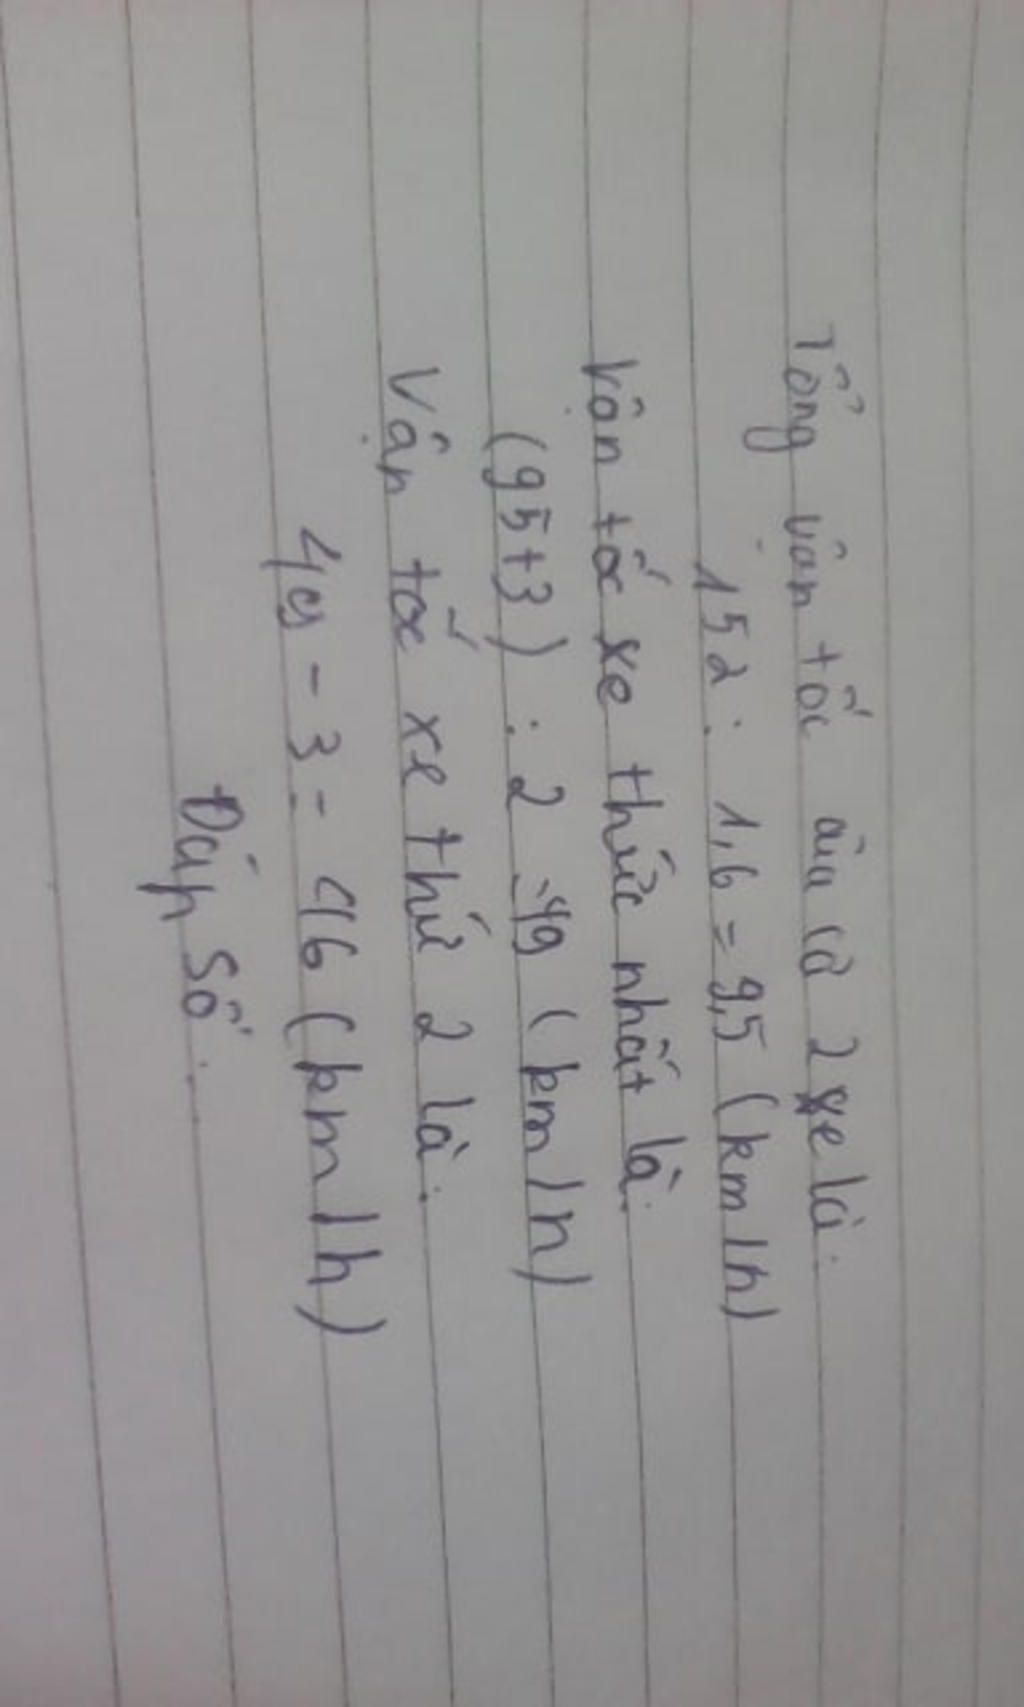 Tổng vận tốc của cả 2 xe là:
152 : 1,6 = 9,5 (km/h)
Vận tốc xe thứ nhất là:
(95+3) : 2 = 49 (km/h)
Vận tốc xe thứ 2 là:
49 - 3 = 46 (km/h)
Đáp số: